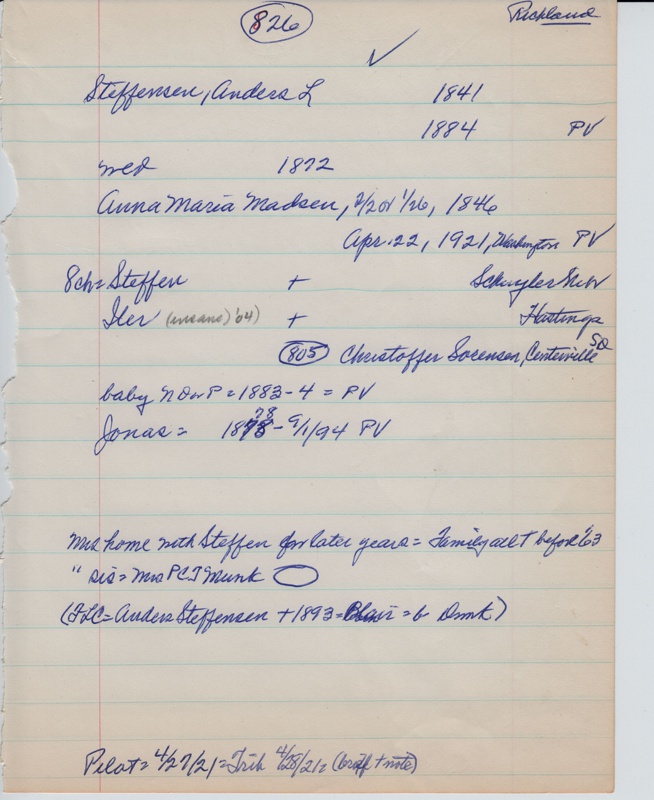 826
Richland
Steffensen, Anders L 1841
1884 PV
wed 1872
Anna Maria Madsen, 2/20 or 1/26, 1846
Apr. 22, 1921, Washington PV
8ch = Steffen + Schuyler Nebr
Iler (insane) '04) + Hastings
805 Christoffer Sorensen, Centerville SD
baby N D or P = 1883-4 = PV
Jonas = 1878 - 9/1/94 PV
Mrs home with Steffen for later years = Family all + before '63
" sis = Mrs P C J Munk
(FLC = Anders Steffensen + 1893 = Blair = b Dmk)
Pilot = 4/27/21 = Trib 4/28/21 = (brief + note)